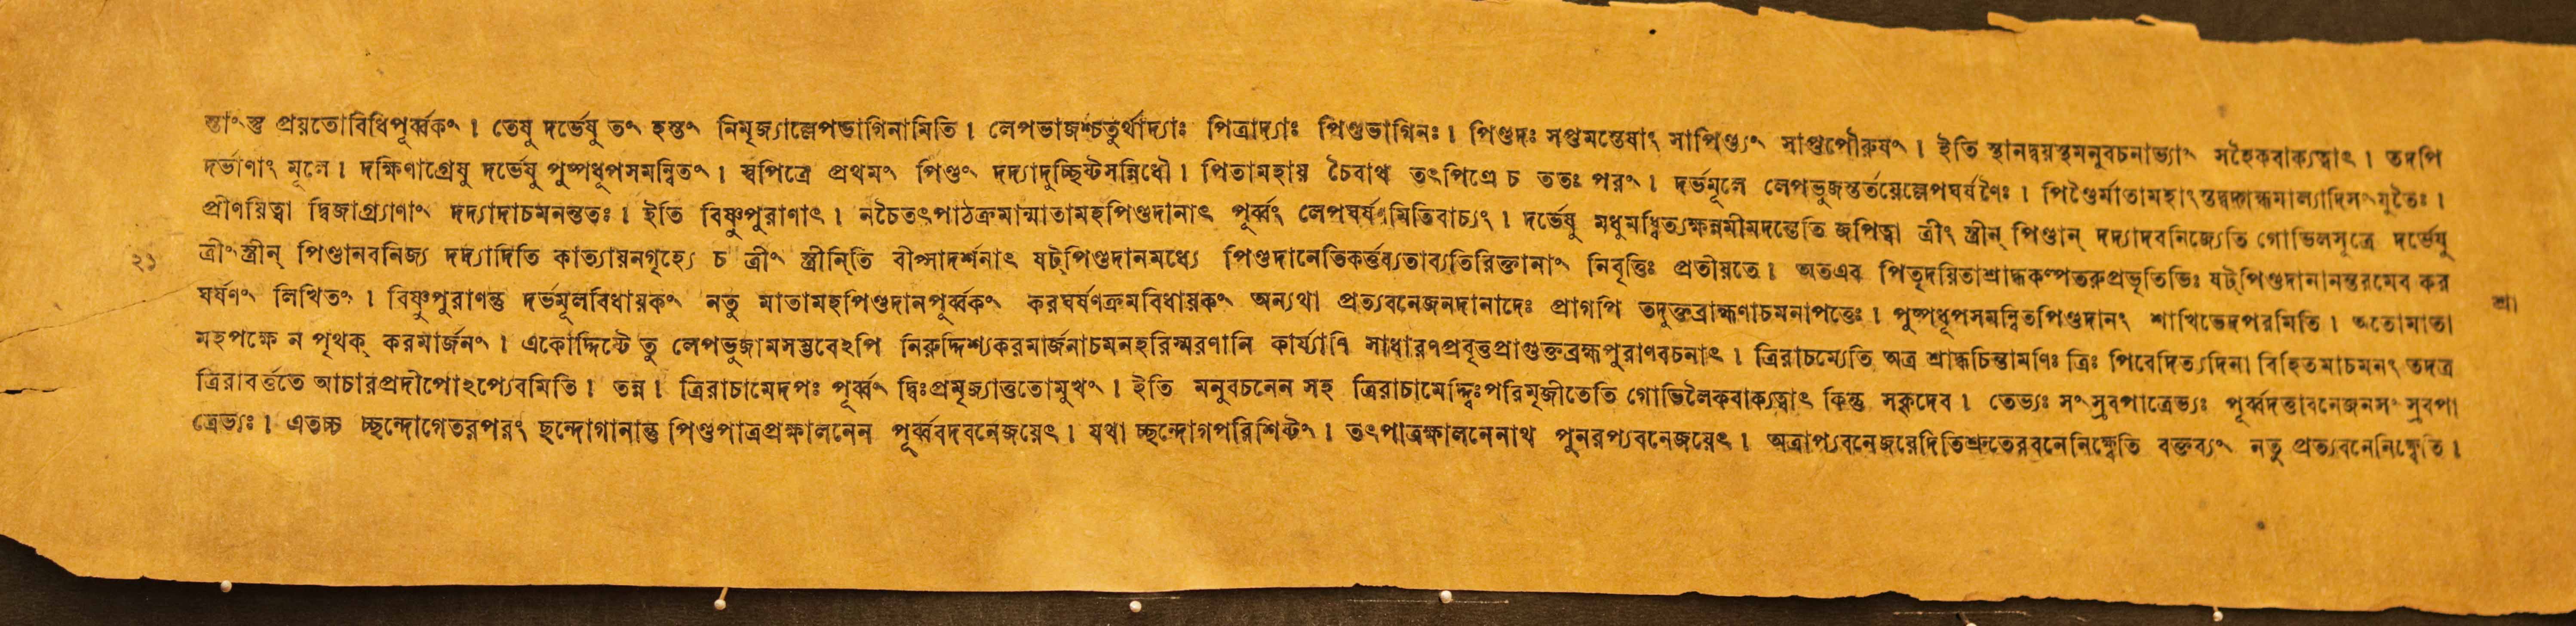 স্তাংস্তু প্রয়তোবিধিপূর্ব্বকং । তেষু দর্ভেষু তং হস্তং নিমৃজ্যাল্লেপভাগিনামিতি । লেপভাজশ্চতুর্থাদ্যাঃ পিত্রাদ্যাঃ পিণ্ডভাগিনঃ । পিণ্ডদঃ সপ্তমস্তেষাং সাপিণ্ড্যং সাপ্তপৌরুষং । ইতি স্থানদ্বয়স্থমনুবচনাভ্যাং সহৈকবাক্যত্বাৎ । তদপি
দর্ভাণাং মূলে । দক্ষিণাগ্রেষু দর্ভেষু পুষ্পধূপসমন্বিতং । স্বপিত্রে প্রথমং পিণ্ডং দদ্যাদুচ্ছিষ্টসন্নিধৌ । পিতামহায় চৈবাথ তৎপিত্রে চ ততঃ পরং । দর্ভমূলে লেপভুজস্তর্তয়েল্লেপঘর্ষণৈঃ । পিণ্ডৈর্মাতামহাংস্তদ্বদ্গন্ধমাল্যাদিসংযুতৈঃ ।
প্রীণয়িত্বা দ্বিজাগ্র্যাণাং দদ্যাদাচমনন্ততঃ । ইতি বিষ্ণুপুরাণাৎ । নচৈতৎপাঠক্রমান্মাতামহপিণ্ডদানাৎ পূর্ব্বং লেপঘর্ষণমিতিবাচ্যং । দর্ভেষু মধুমধ্বিত্যক্ষন্নমীমদন্তেতি জপিত্বা ত্রীং স্ত্রীন্ পিণ্ডান্ দদ্যাদবনিজ্যেতি গোভিলসূত্রে দর্ভেষু
২১ ত্রীংস্ত্রীন্ পিণ্ডানবনিজ্য দদ্যাদিতি কাত্যায়নগৃহ্যে চ ত্রীং স্ত্রীনিতি বীপ্সাদর্শনাৎ ষট্‌পিণ্ডদানমধ্যে পিণ্ডদানেতিকর্ত্তব্যতাব্যতিরিক্তানাং নিবৃত্তিঃ প্রতীয়তে । অতএব পিতৃদয়িতাশ্রাদ্ধকল্পতরুপ্রভৃতিভিঃ ষট্‌পিণ্ডদানানন্তরমেব কর
ঘর্ষণং লিখিতং । বিষ্ণুপুরাণন্তু দর্ভমূলবিধায়কং নতু মাতামহপিণ্ডদানপূর্ব্বকং করঘর্ষণক্রমবিধায়কং অন্যথা প্রত্যবনেজনদানাদেঃ প্রাগপি তদুক্তব্রাহ্মণাচমনাপত্তেঃ । পুষ্পধূপসমন্বিতপিণ্ডদানং শাখিভেদপরমিতি । অতোমাতা শ্রা
মহপক্ষে ন পৃথক্ করমার্জনং । একোদ্দিষ্টে তু লেপভুজামসম্ভবেঽপি নিরুদ্দিশ্যকরমার্জনাচমনহরিস্মরণানি কার্য্যাণি সাধারণপ্রবৃত্তপ্রাগুক্তব্রহ্মপুরাণবচনাৎ । ত্রিরাচম্যেতি অত্র শ্রাদ্ধচিন্তামণিঃ ত্রিঃ পিবেদিত্যদিনা বিহিতমাচমনং তদত্র
ত্রিরাবর্ত্ততে আচারপ্রদীপোঽপ্যেবমিতি । তন্ন । ত্রিরাচামেদপঃ পূর্ব্বং দ্বিঃপ্রমৃজ্যাত্ততোমুখং । ইতি মনুবচনেন সহ ত্রিরাচামেদ্দ্বিঃপরিমৃজীতেতি গোভিলৈকবাক্যত্বাৎ কিন্তু সকৃদেব । তেভ্যঃ সংস্রবপাত্রেভ্যঃ পূর্ব্বদত্তাবনেজনসং স্রবপা
ত্রেভ্যঃ । এতচ্চ চ্ছন্দোগেতরপরং ছন্দোগানান্তু পিণ্ডপাত্রপ্রক্ষালনেন পূর্ব্ববদবনেজয়েৎ । যথা চ্ছন্দোগপরিশিষ্টং । তৎপাত্রক্ষালনেনাথ পুনরপ্যবনেজয়েৎ । অত্রাপ্যবনেজয়েদিতিশ্রুতেরবনেনিক্ষ্বেতি বক্তব্যং নতু প্রত্যবনেনিক্ষ্বেতি ।